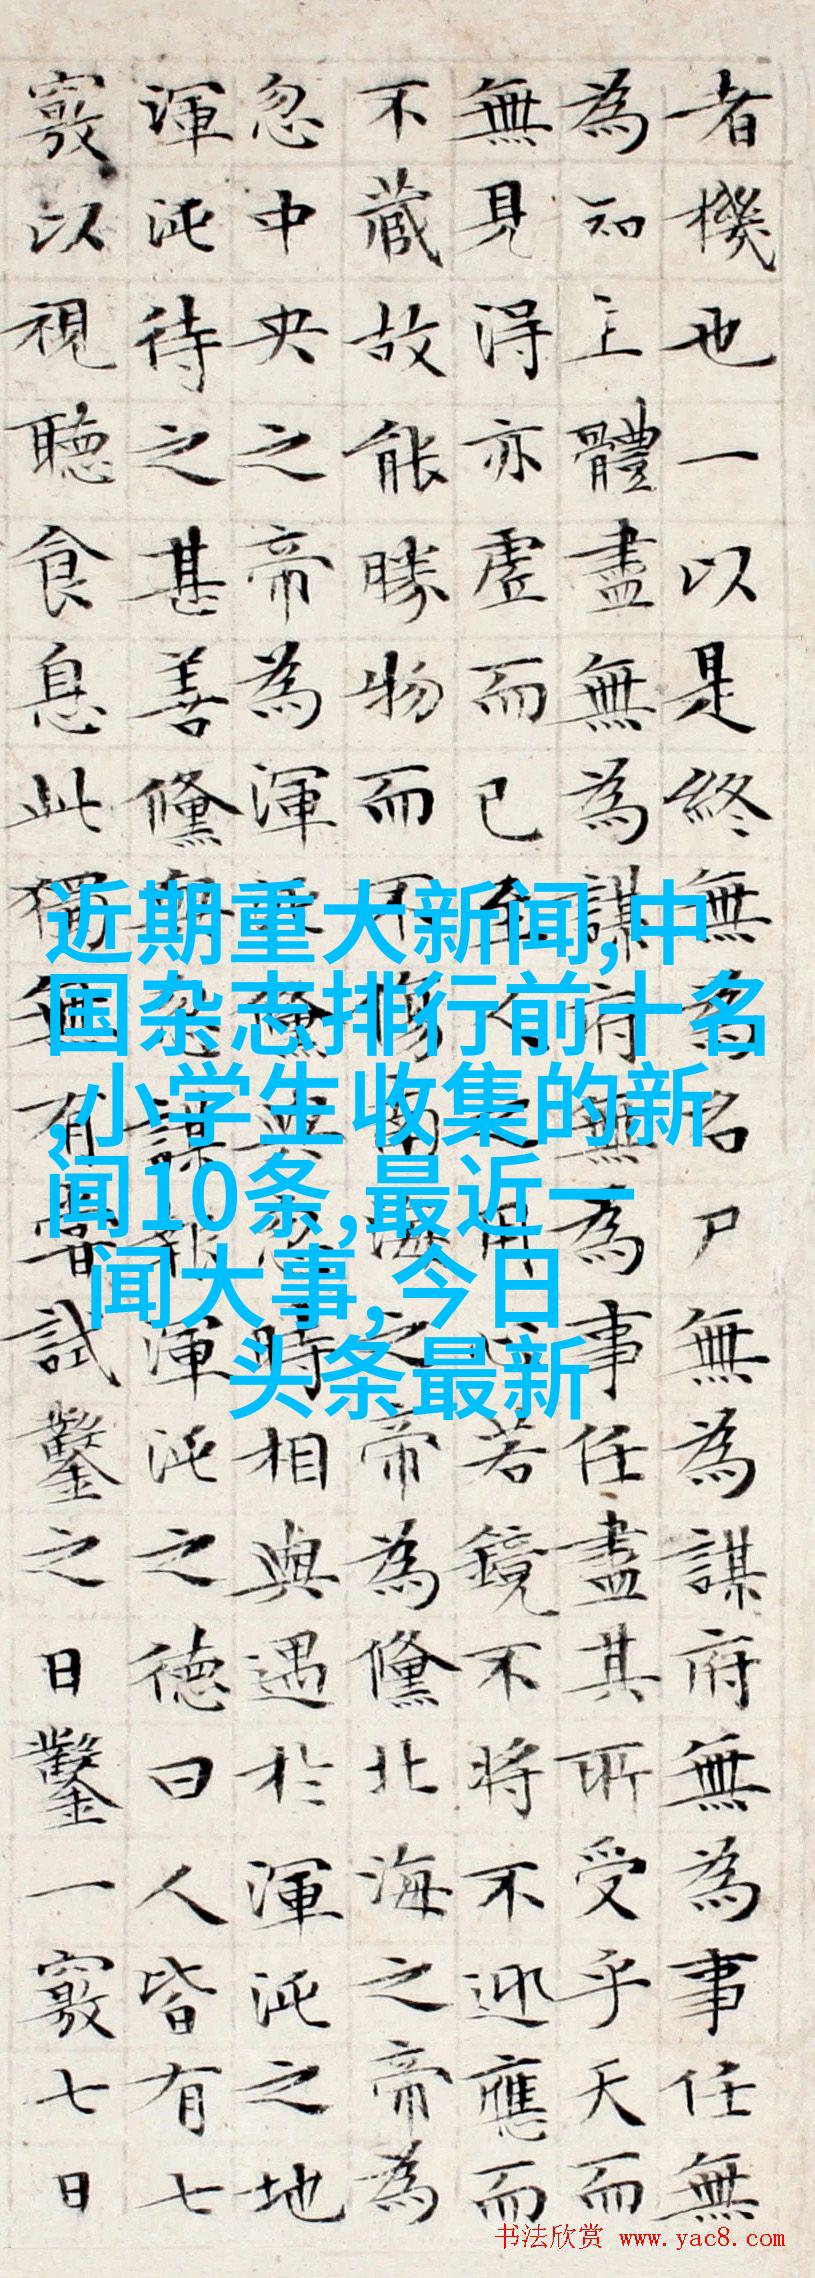 者機也一以是終無為名尸無為謀府無為事任無
為知主體盡無為謀府無為事任盡其所受乎天而
無見得亦虛而已至人之用心若鏡不將不迎應而
不藏故能勝物而不傷南海之帝為儵北海之帝為
忽中央之帝為渾沌儵與忽時相與遇於渾沌之地
渾沌待之甚善儵與忽謀報渾沌之德曰人皆有七
竅以視聽食息此獨無有嘗試鑿之日鑿一竅七日
近期重大新闻,中
国杂志排行前十名
,小学生收集的新
闻10条,最近一
闻大事,今日
头条最新
书法欣赏 www.yac8.com